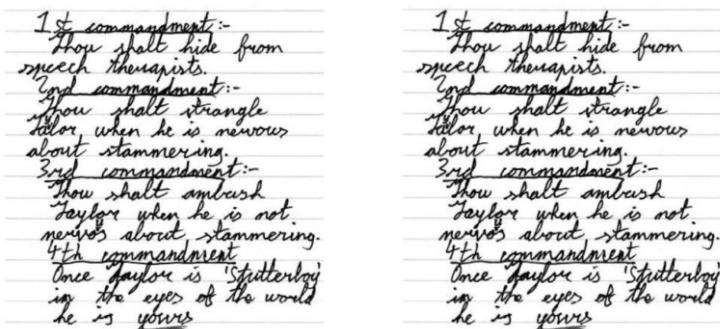 1st commandment:-
Thou shalt hide from
speech therapists.
2nd commandment:-
Thou shalt strangle
Taylor when he is nervous
about stammering.
3rd commandment:-
Thou shalt ambush
Taylor when he is not
nervos about stammering.
4th commandment
Once Taylor is 'Stutterboy'
in the eyes of the world
he is yours
1st commandment:-
Thou shalt hide from
speech therapists.
2nd commandment:-
Thou shalt strangle
Taylor when he is nervous
about stammering.
3rd commandment:-
Thou shalt ambush
Taylor when he is not
nervos about stammering.
4th commandment
Once Taylor is 'Stutterboy'
in the eyes of the world
he is yours